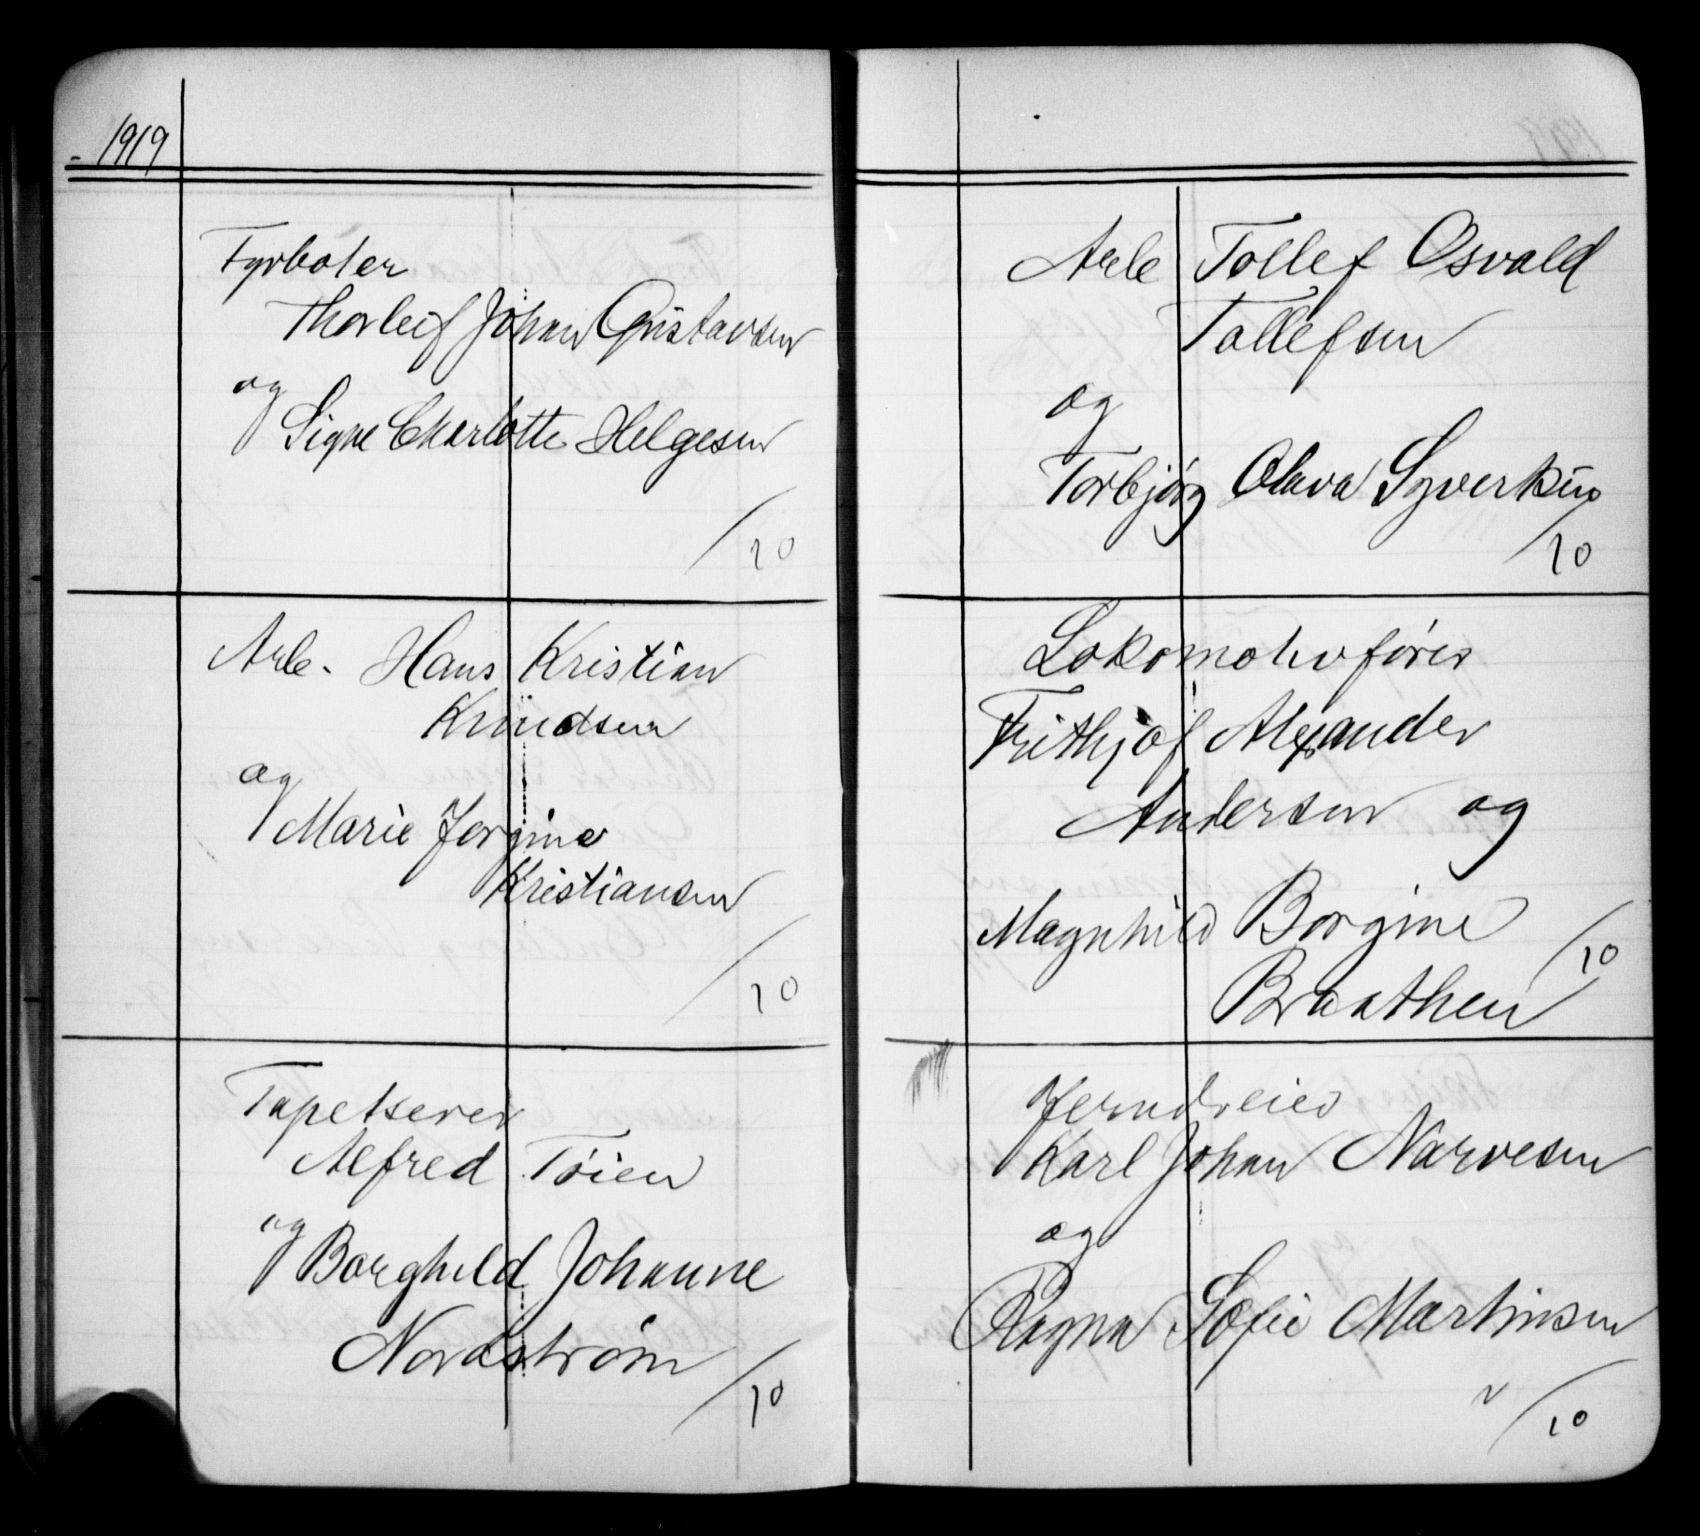 1919
Fyrbøter
Thorleif Johan Gustavsen
og
Signe Charlotte Helgesen
/10
Arb. Hans Kristian
Knudsen
og
Marie Jorgine
Kristiansen
/10
Tapetserer
Alfred Tøien
og
Borghild Johanne
Nordstrøm
/10
Arb Tollef Osvald
Tollefsen
og
Torbjørg Olava Syvertsen
/10
Lokomotivfører
Frithjof Alexander
Andersen og
Magnhild Borgine
/10
Braathen
Jerndreier
Karl Johan Narvesen
og
Ragna Sofie Martinsen
/10